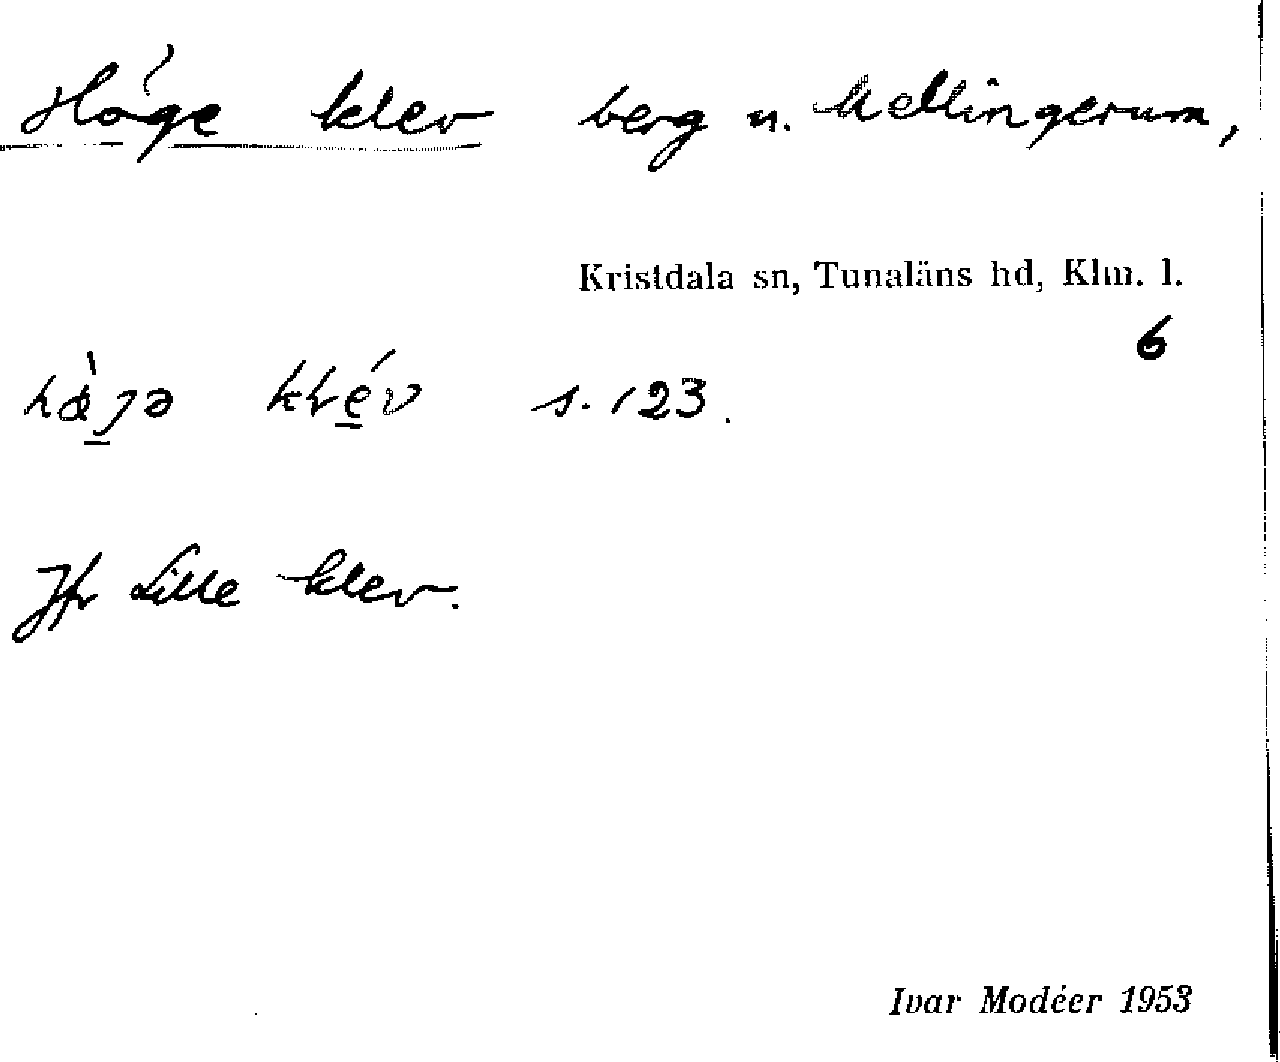 Höge klev berg n. Mellingerum,
Kristdala sn, Tunaläns hd, Klm. l.
6
s. 123.
Jfr Lille klev.
Ivar Modéer 1953